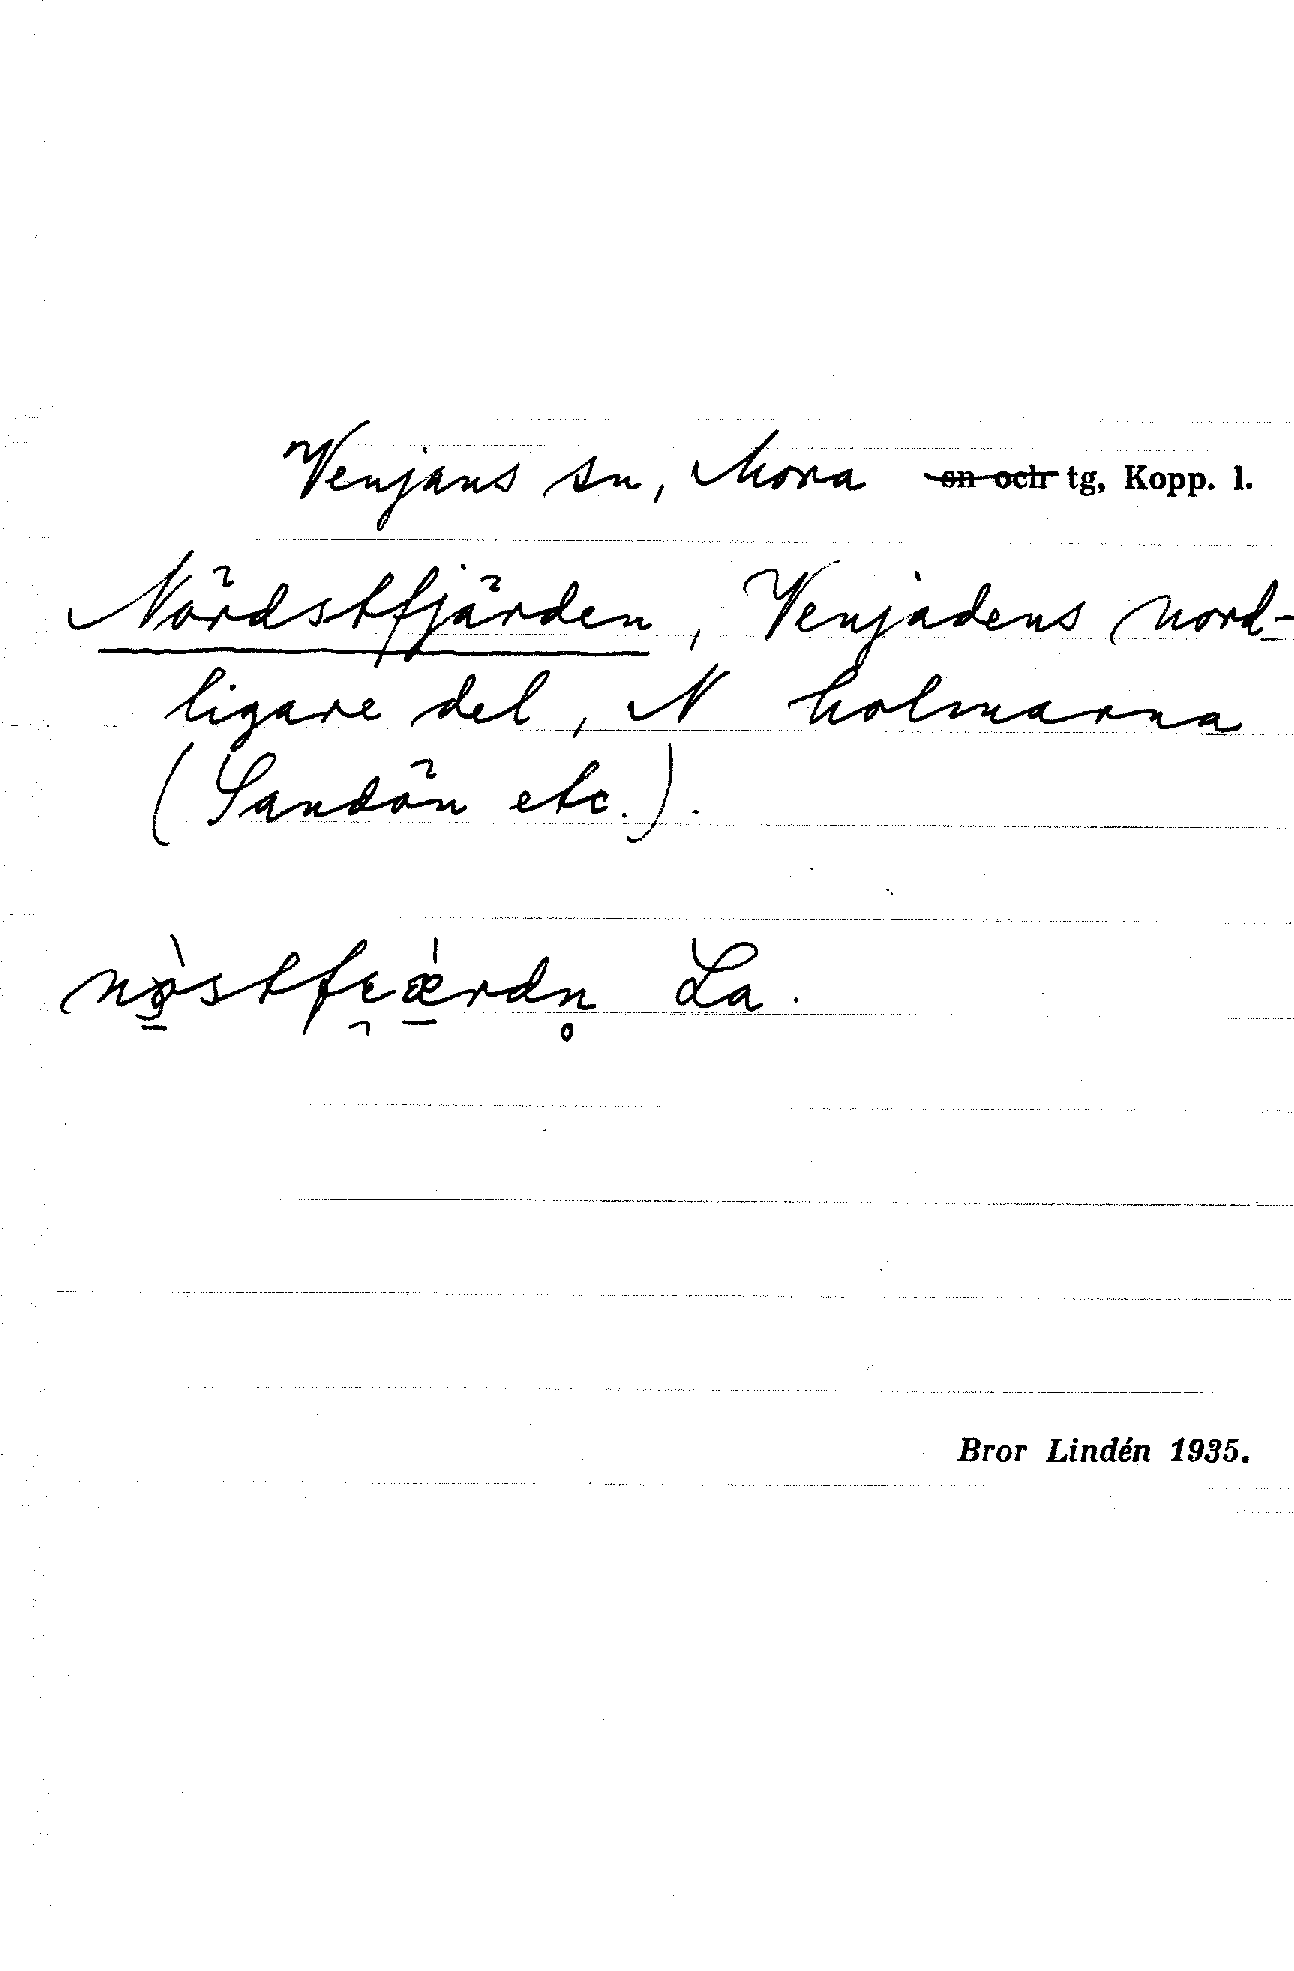 Venjans sn, Mora sn och tg, Kopp. l.
Nördstfjärden, Venjadens nord-
ligare del, N holmarna
(Sandön etc.).
La.
Bror Lindén 1935.